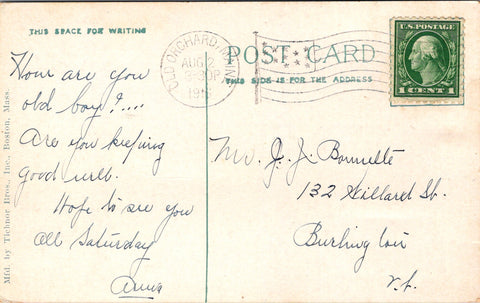 THIS SPACE FOR WRITING
How are you
old boy?....
Are you keeping
good well.
Hope to see you
all Saturday
Anna
Mfd. by Tichnor Bros., Inc., Boston, Mass.
OLD ORCHARD,
AUG 2
30P
POST CARD
THIS SIDE IS FOR THE ADDRESS
U.S. POSTAGE
1 CENT 1
Mr. J. J. Bonnette
132 Willard St.
Burlington
Vt.